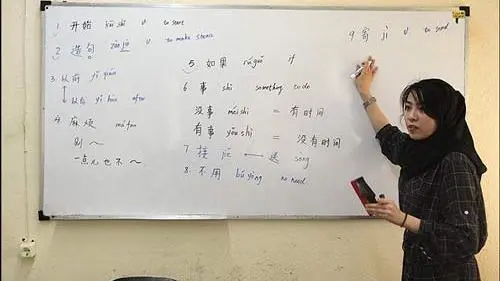 1. 开始 kāi shǐ v to start
2. 造句 zào jù v to make
3 以前 yǐ qián
以后 yǐ hòu after
4. 麻烦 má fan
别~
一点儿也不~
5. 如果 rú guǒ if
6 事 shì something to do
没事 méi shì = 有时间
有事 yǒu shì = 没有时间
7. 接 jiē 送 song
8. 不用 bú yòng no need
9 寄 jì v to send